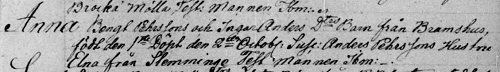 Brocka Mölla Test: Mannen Ibm:
Anna Bengt Pehrssons och Ingar Anders Dters Barn från Bramshus,
födt den 1ste Döpt den 2dra Octobr: Susc: Anders Pehrssons Hustru
Elna från Flemminge Test mannen Ibm: